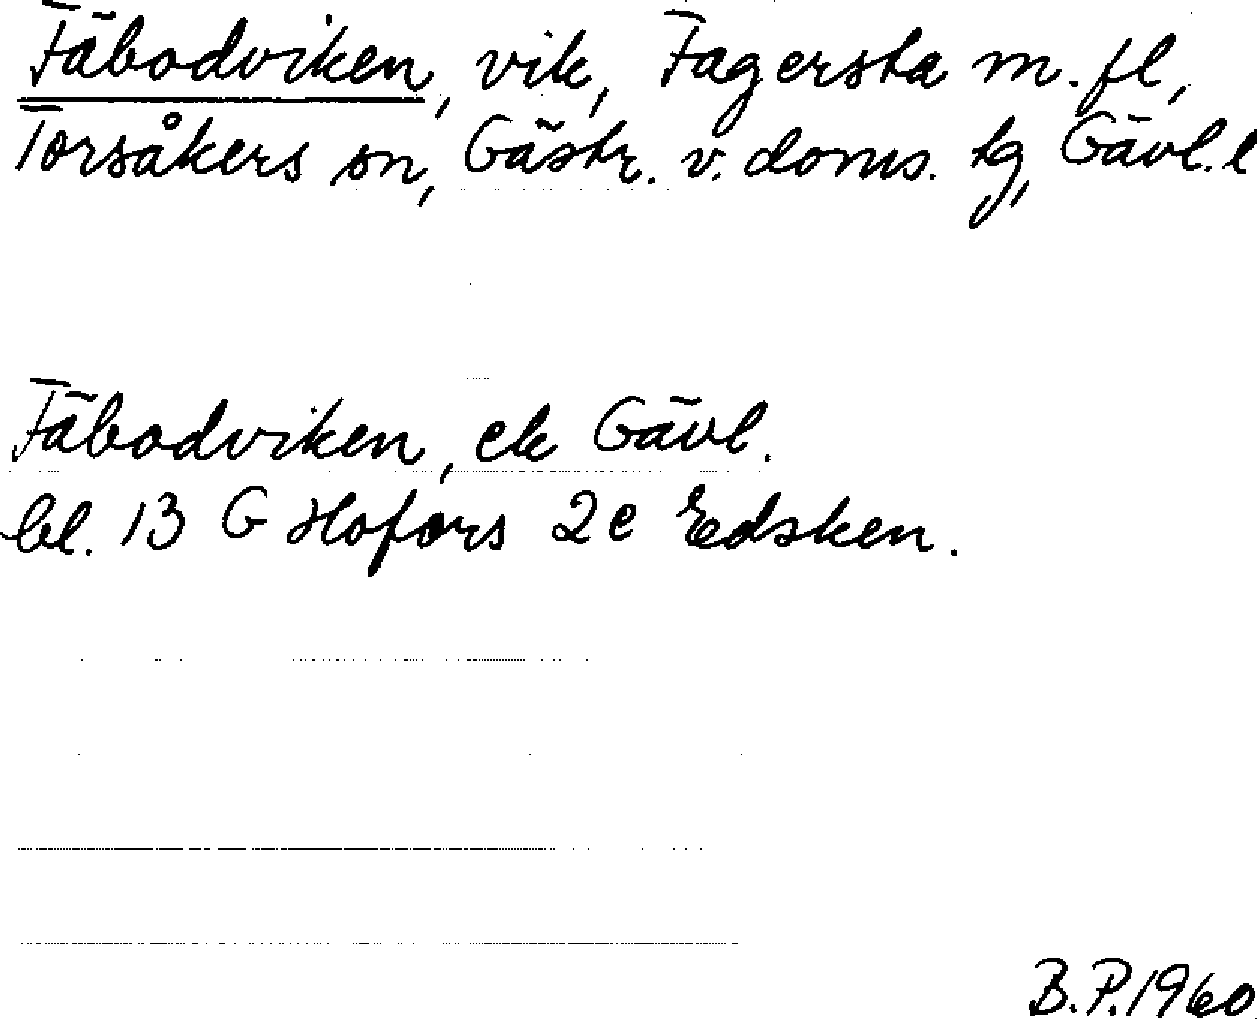 Fäbodviken, vik, Fagersta m.fl,
Torsåkers sn, Gästr. v. doms. tg, Gävl. l
Fäbodviken, ek Gävl.
bl. 13 G Hofors 2e Edsken.
B.P. 1960